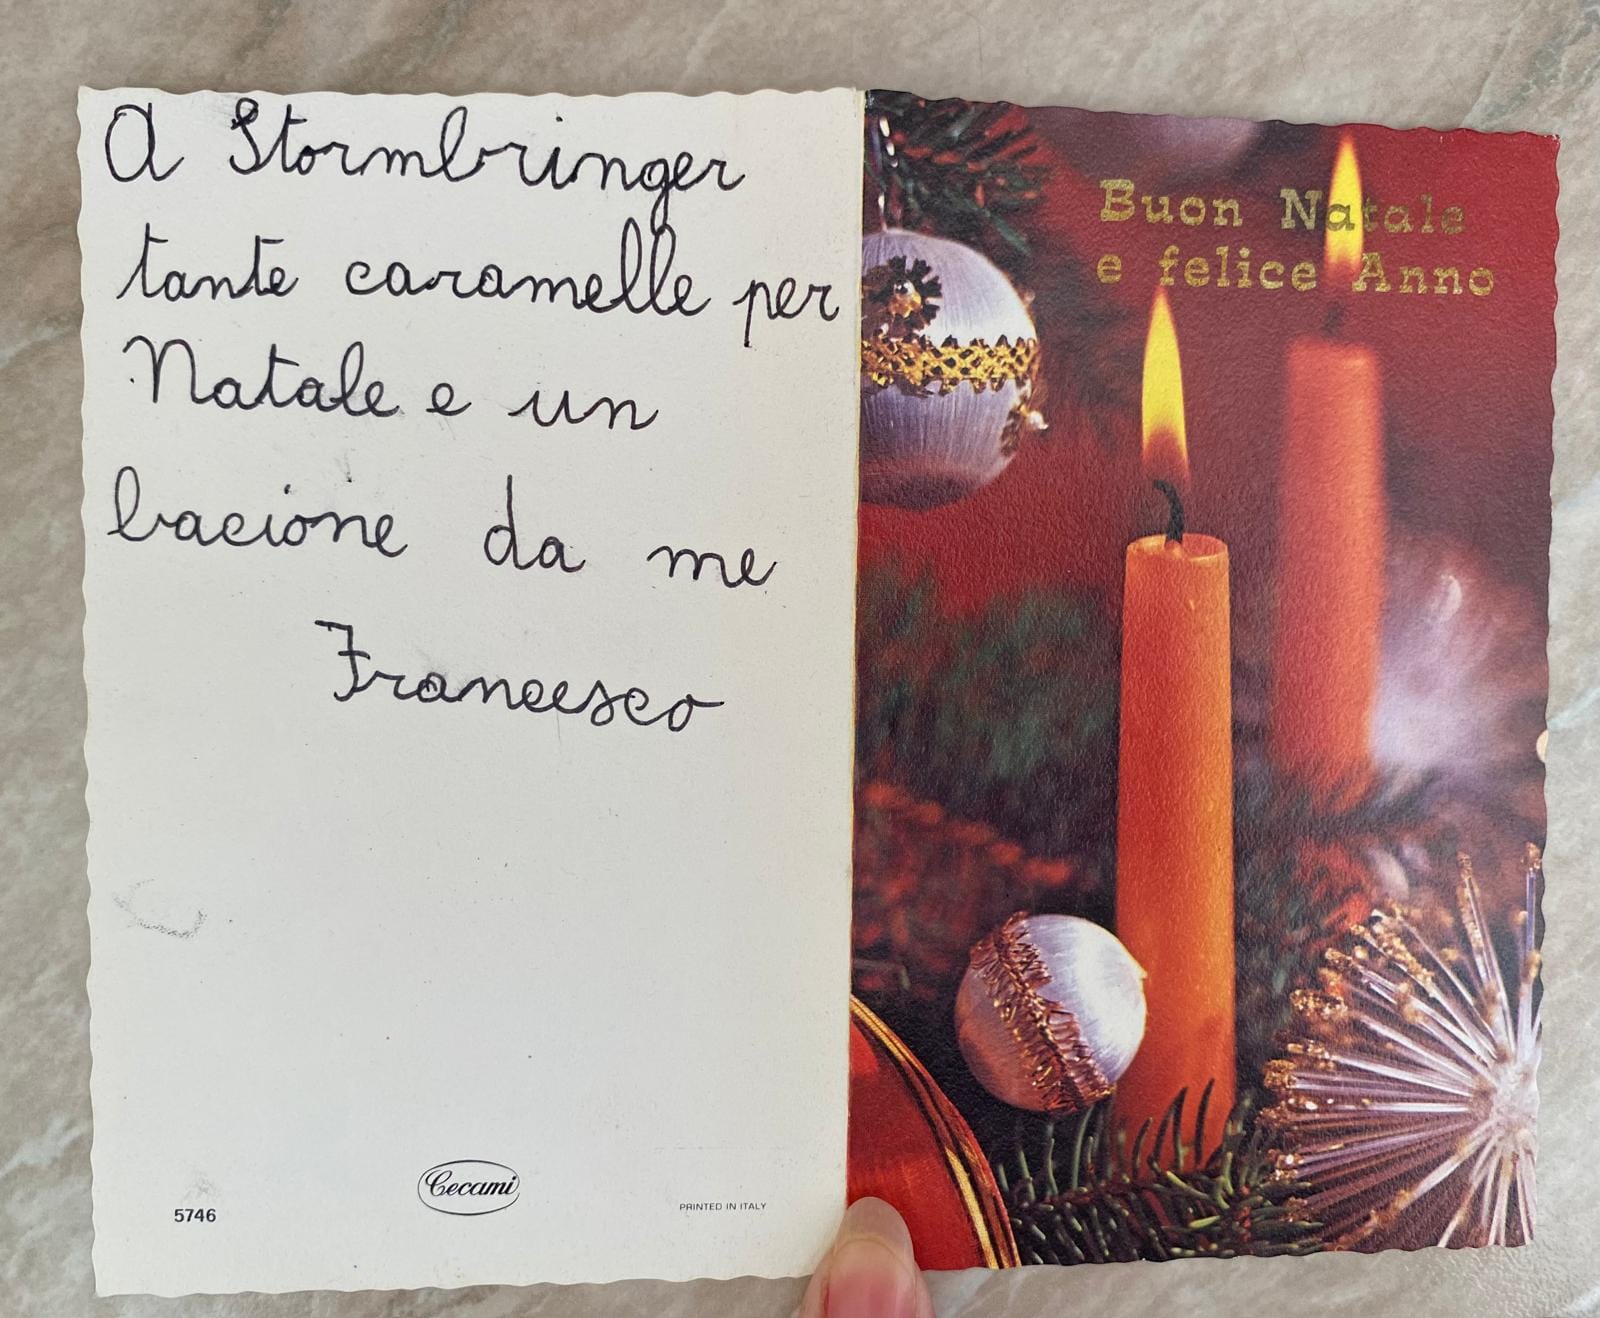 A Stormbringer
tante caramelle per
Natale e un
bacione da me
Francesco
5746
Cecami
PRINTED IN ITALY
Buon Natale
e felice Anno